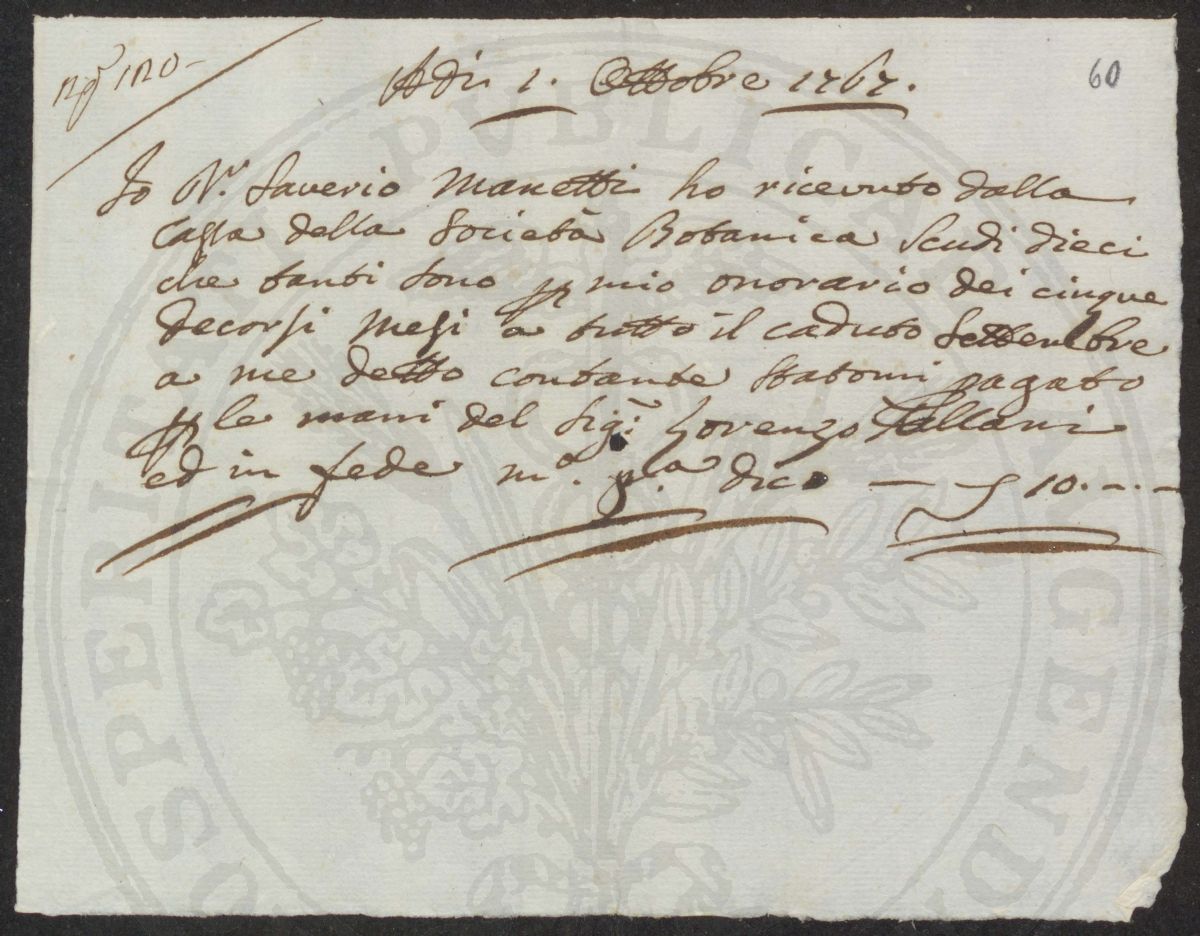 Adi 1. Ottobre 1767.
60
Io Saverio Manetti ho ricevuto dalla
Cassa della Società Botanica Scudi dieci
che tanti sono p mio onorario dei cinque
decorsi Mesi a tutto il caduto Settembre
a me detto contante statomi pagato
p le mani del Sig.r Lorenzo
ed in fede m.o p.a dico — 10.-.-
PROSPERITATI PUBLICAE AUGENDAE